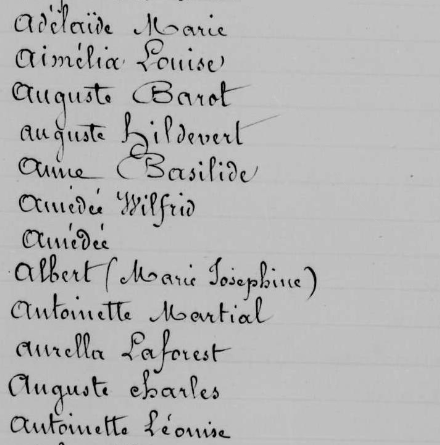 Adélaïde Marie
Aimélia Louise
Auguste Barot
auguste Hildevert
Anne Basilide
Amédée Wilfrid
Amédée
Albert (Marie Josephine)
Antoinette Martial
aurella Laforest
Auguste charles
Antoinette Léonise